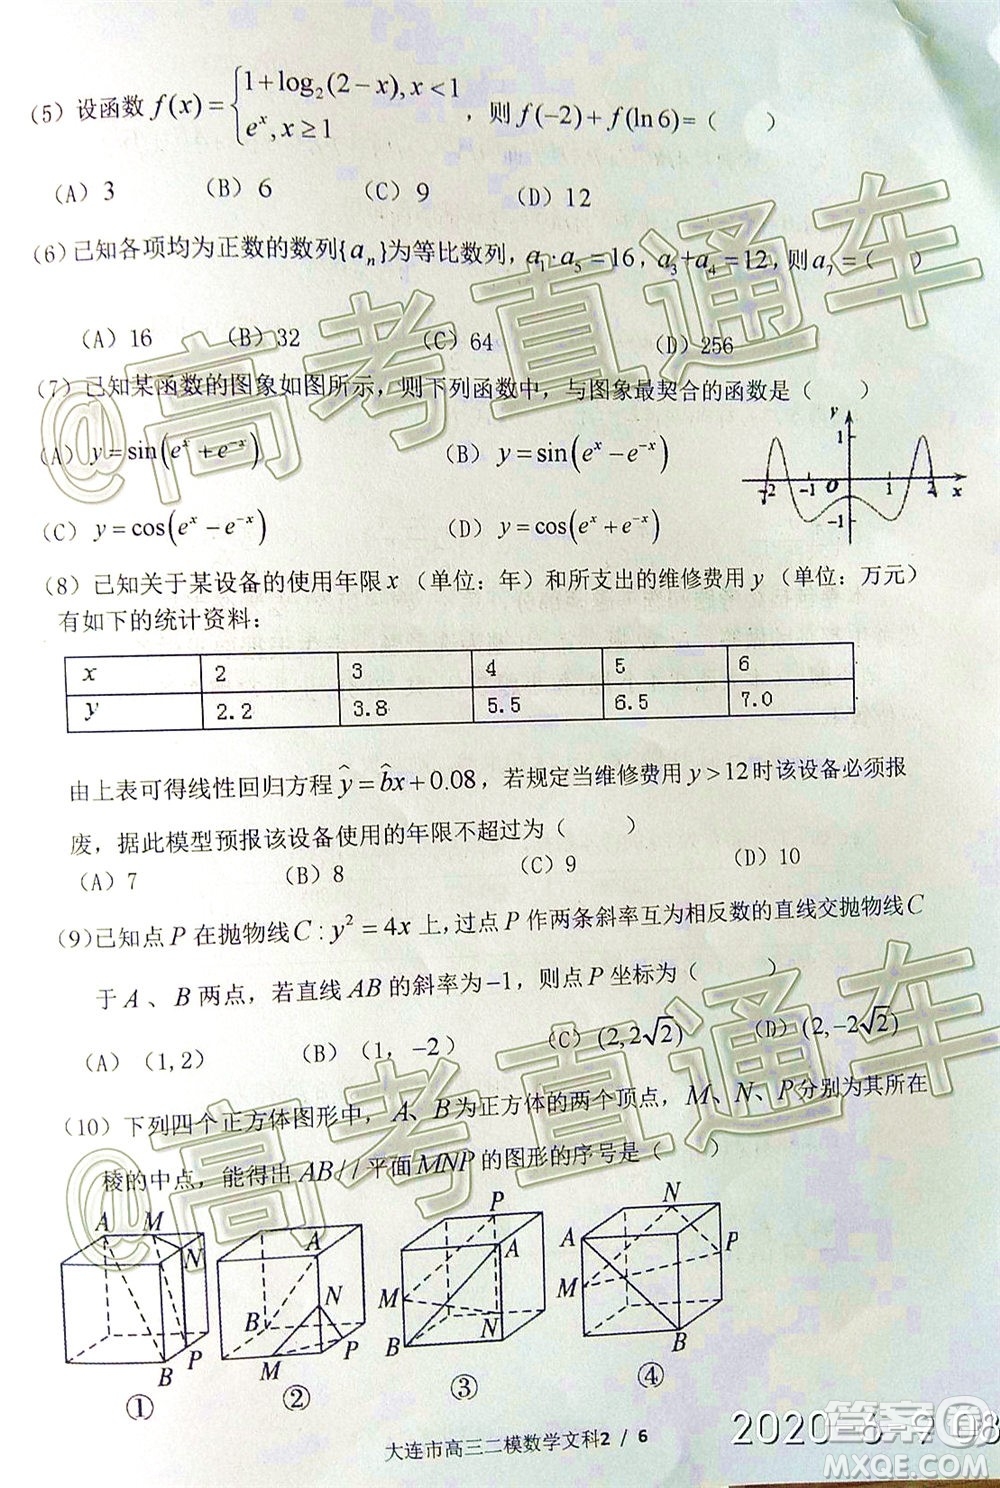 (5) 设函数 f(x) = { 1+log₂(2−x), x<1
eˣ, x≥1 , 则 f(−2)+f(ln6)=( )
(A) 3 (B) 6 (C) 9 (D) 12
(6) 已知各项均为正数的数列{aₙ}为等比数列, a₁·a₅=16, a₃+a₄=12, 则a₇=( )
(A) 16 (B) 32 (C) 64 (D) 256
(7) 已知某函数的图象如图所示, 则下列函数中, 与图象最契合的函数是( )
(A) y=sin(eˣ+e⁻ˣ) (B) y=sin(eˣ−e⁻ˣ)
(C) y=cos(eˣ−e⁻ˣ) (D) y=cos(eˣ+e⁻ˣ)
y
1
-2 -1 O 1 2 x
-1
(8) 已知关于某设备的使用年限 x (单位: 年) 和所支出的维修费用 y (单位: 万元)
有如下的统计资料:
x 2 3 4 5 6
y 2.2 3.8 5.5 6.5 7.0
由上表可得线性回归方程 ŷ=b̂x+0.08, 若规定当维修费用 y>12时该设备必须报
废, 据此模型预报该设备使用的年限不超过为( )
(A) 7 (B) 8 (C) 9 (D) 10
(9) 已知点 P 在抛物线 C: y²=4x 上, 过点 P 作两条斜率互为相反数的直线交抛物线 C
于 A、B 两点, 若直线 AB 的斜率为 −1, 则点 P 坐标为( )
(A) (1,2) (B) (1, −2) (C) (2,2√2) (D) (2,−2√2)
(10) 下列四个正方体图形中, A、B 为正方体的两个顶点, M、N、P 分别为其所在
棱的中点, 能得出 AB// 平面 MNP 的图形的序号是( )
A M N B P
A B N M P
P A M N B
N A P M B
① ② ③ ④
大连市高三二模数学文科2 / 6
@高考直通车
@高考直通车
答案圈
MXQE.COM